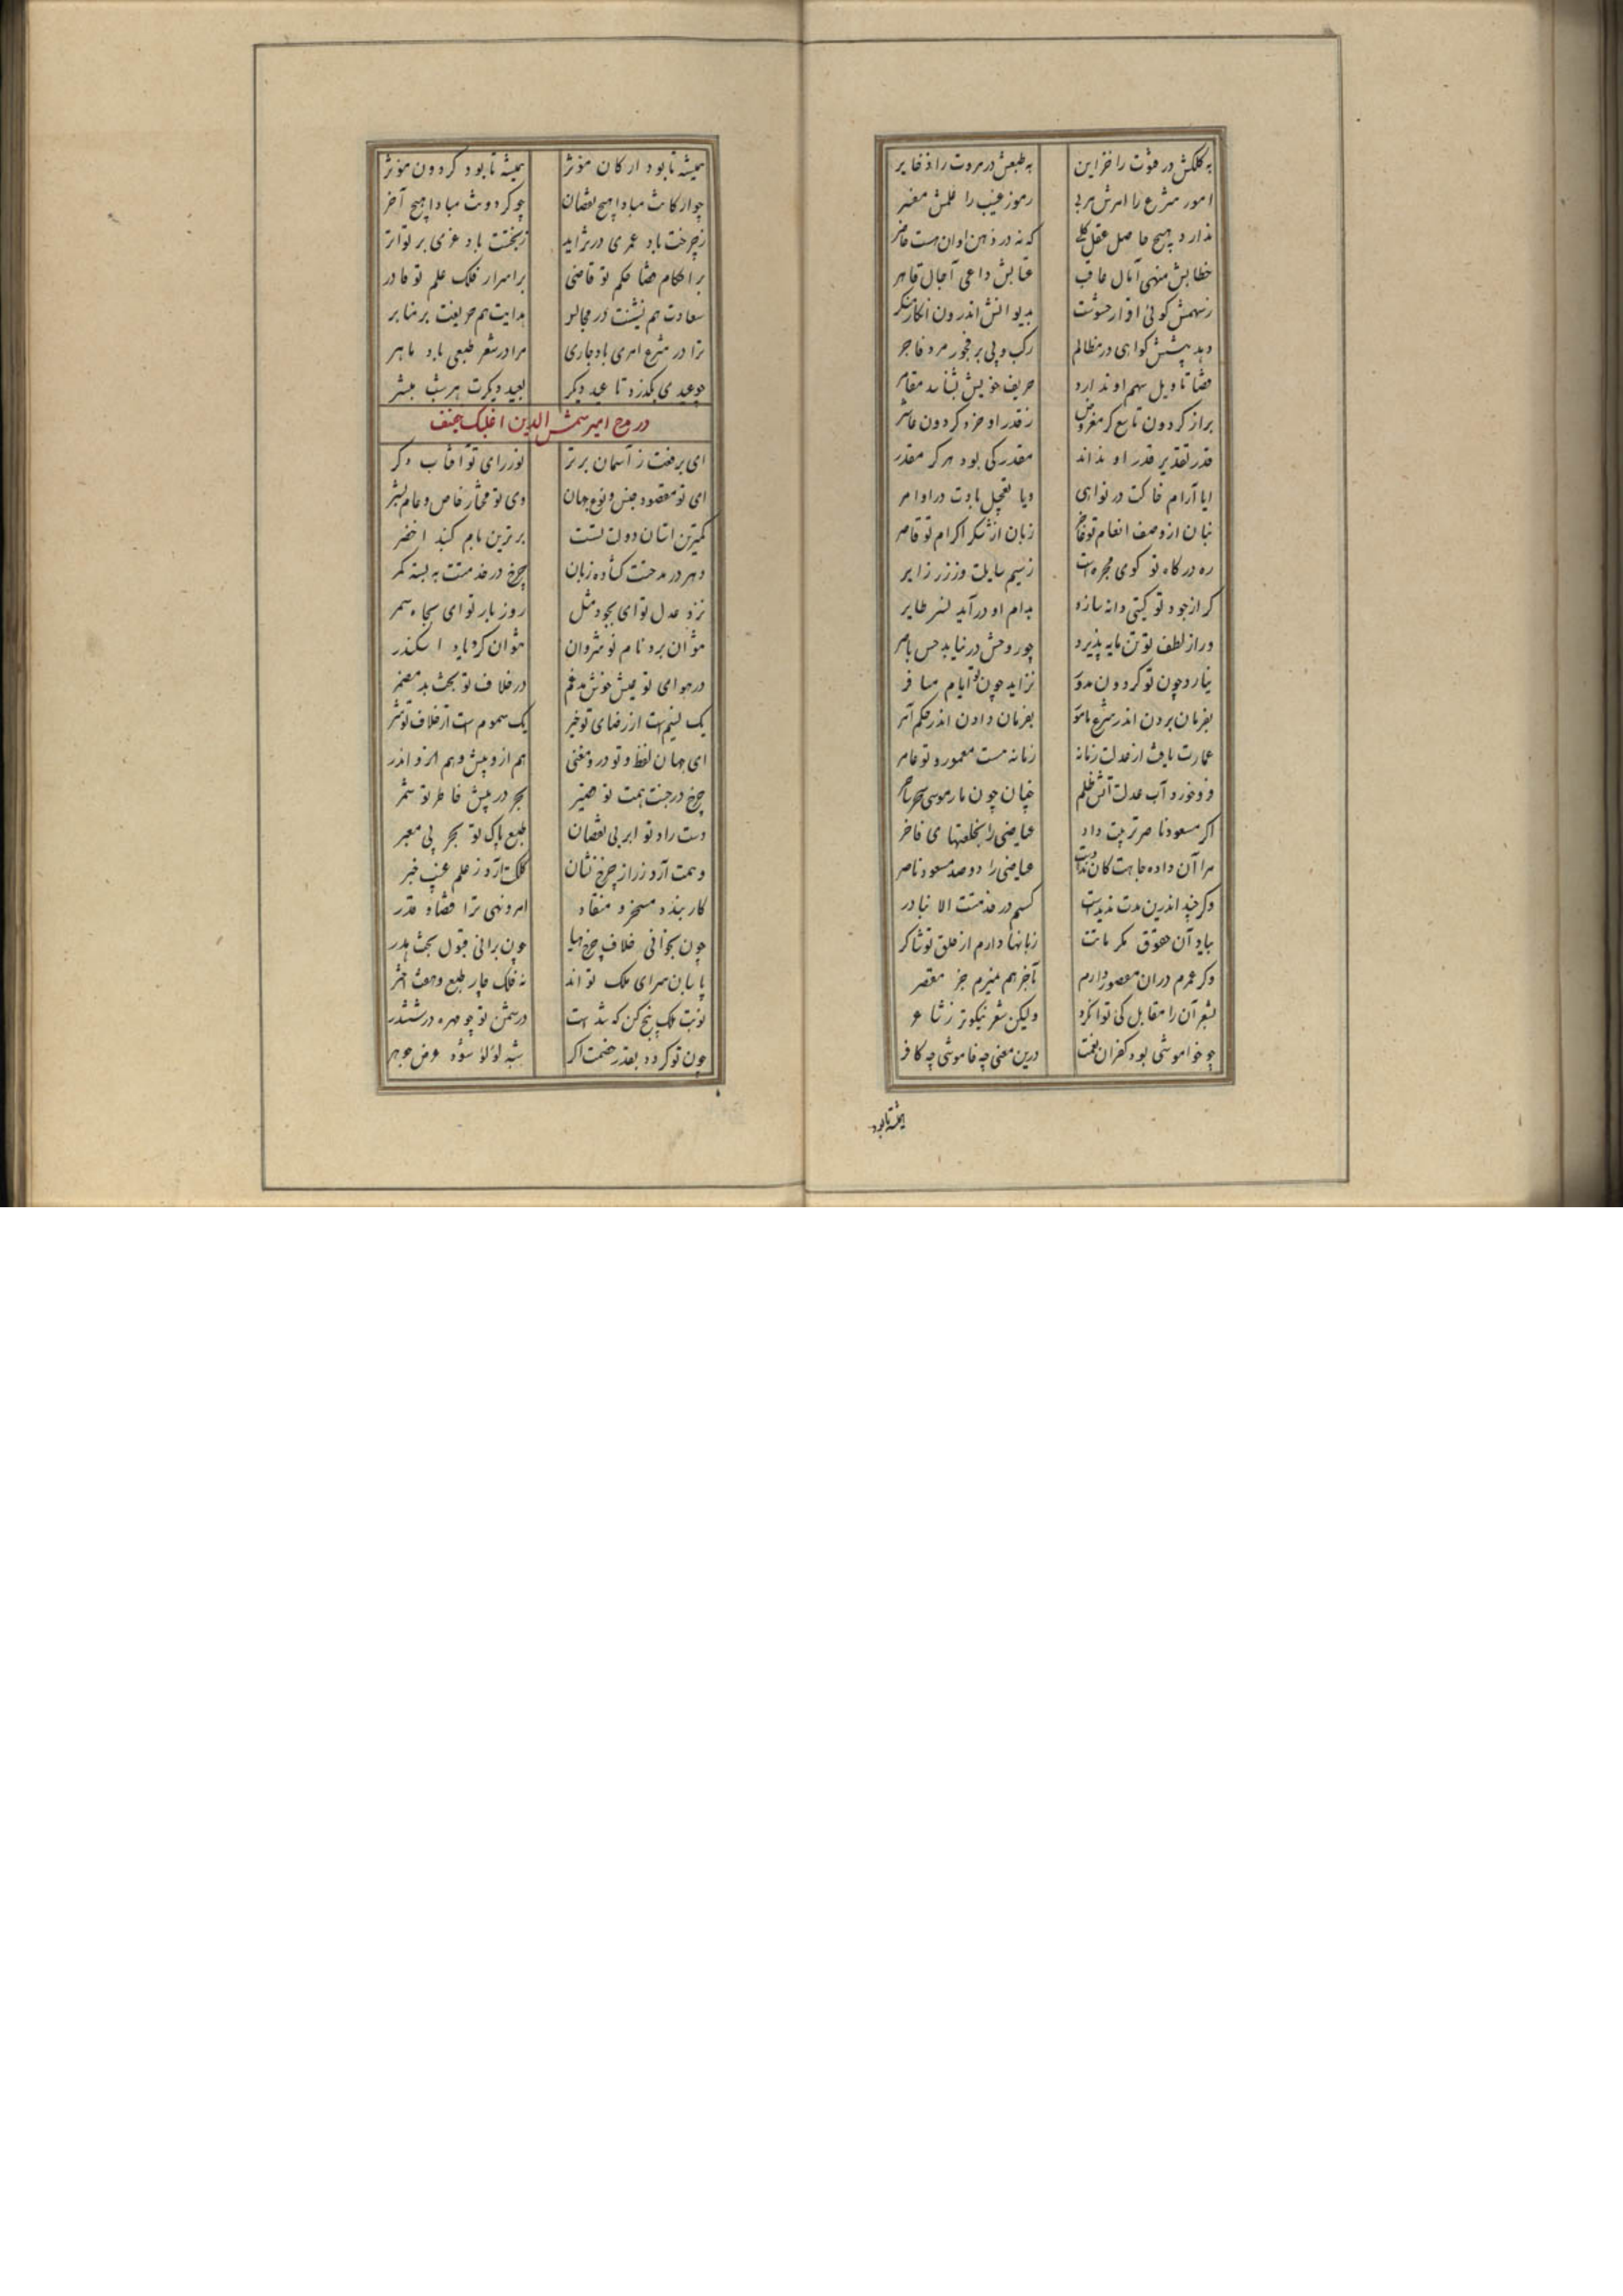 به کلکش در فتوت را خزاین به طبعش در مروت را ذخایر
امور شرع را امرش مربی رموز غیب را علمش مفسر
ندارد هیچ حاصل عقل کلی که نه در ذهن او آن هست حاضر
خطابش منهی آمال عاقب عتابش داعی آجال قاهر
ز سهمش گوئی اقرار خموشست به دیوانش اندرون انکار منکر
دهد پیشش گواهی در مظالم رگ و پی بر فجور مرد فاجر
قضا تأویل سهم او ندارد حریف خویش بشناسد مقامر
براز گردون تاسع کر مفروض ز قدر او خرد گردون عاشر
قدر تقدیر قدر او نداند مقدر کی بود هرگز مقدر
ایا آرام خاکت در نواهی ویا تعجیل بادت در اوامر
بنان از وصف انعام تو عاجز زبان از شکر اکرام تو قاصر
ره درگاه تو گوی مجره است ز سیم سایلت وز زر زایر
گر از جود تو گیتی دانه سازد بدام او درآید نسر طایر
ور از لطف تو تن مایه پذیرد چو روحش در نیابد حس باصر
نیارد چون تو گردون مدور نزاید چون تو ایام مسافر
بفرمان بردن اندر شرع مأمور بفرمان دادن اندر حکم آمر
عمارت یافت از عدلت زمانه زمانه هست معمور و تو عامر
فرو خورد آب عدلت آتش ظلم چنان چون مار موسی سحر ساحر
اگر مسعود ناصر تربیت داد عیاضی را بخلعتهای فاخر
مرا آن داده جاهت کان نداده است عیاضی را دو صد مسعود ناصر
وگر چند اندرین مدت ندیدست کسم در خدمتت الا نبادر
بیاد آن حقوق مکرماتت زبانها دارم از خلق تو شاکر
وگر عمرم در آن مقصور دارم بآخر هم نمیرم جز مقصر
بشعر آن را مقابل کی توان کرد ولیکن شعر نیکوتر ز شاعر
چو خواموشی بود کفران نعمت درین معنی چه خاموشی چه کافر
همیشه تا بود
همیشه تا بود ارکان مؤثر همیشه تا بود گردون مؤثر
چو ارکانت مبادا هیچ نقصان چو گردونت مبادا هیچ آخر
ز چرخت باد عمری در تزاید ز بختت باد عزی بر تواتر
بر احکام قضا حکم تو قاضی بر اسرار فلک علم تو قادر
سعادت هم نشینت در مجالس هدایت هم حریفت بر منابر
ترا در شرع امری باد جاری مرا در شعر طبعی باد ماهر
چو عیدی بگذرد تا عید دیگر بعید دیگرت هر شب مبشر
در مدح امیر شمس الدین اغلبک جنف
ای برفعت ز آسمان برتر نور رای تو آفتاب دگر
ای تو مقصود جنس و نوع جهان وی تو مختار خاص و عام بشر
کمترین آستان دولت تست برترین بام گنبد اخضر
دهر در مدحتت گشاده زبان چرخ در خدمتت ببسته کمر
نزد عدل تو ای بجود مثل روز بار تو ای بجاه سمر
نتوان برد نام نوشروان نتوان کرد یاد اسکندر
در هوای تو عیش خوش مدغم در خلاف تو بخت بد مضمر
یک نسیم است از رضای تو خیر یک سموم است از خلاف تو شر
ای جهان لفظ و تو درو معنی هم ازو پیش و هم ازو اندر
چرخ در جنب همت تو حقیر بحر در پیش خاطر تو شمر
دست راد تو ابر بی نقصان طبع پاک تو بحر بی معبر
وهمت آرد ز راز چرخ نشان کلکت آرد ز علم غیب خبر
کار بنده مسخر و منقاد امر و نهی ترا قضا و قدر
چون بخوانی خلاف چرخ هبا چون برانی قبول بخت هدر
پاسبان سرای ملک تواند نه فلک چار طبع و هفت اختر
نوبت ملک پنج کن که شدست دشمن تو چو مهره در ششدر
چون تو گر بود بقدر خصمت اگر شبه لؤلؤ شود عرض جوهر